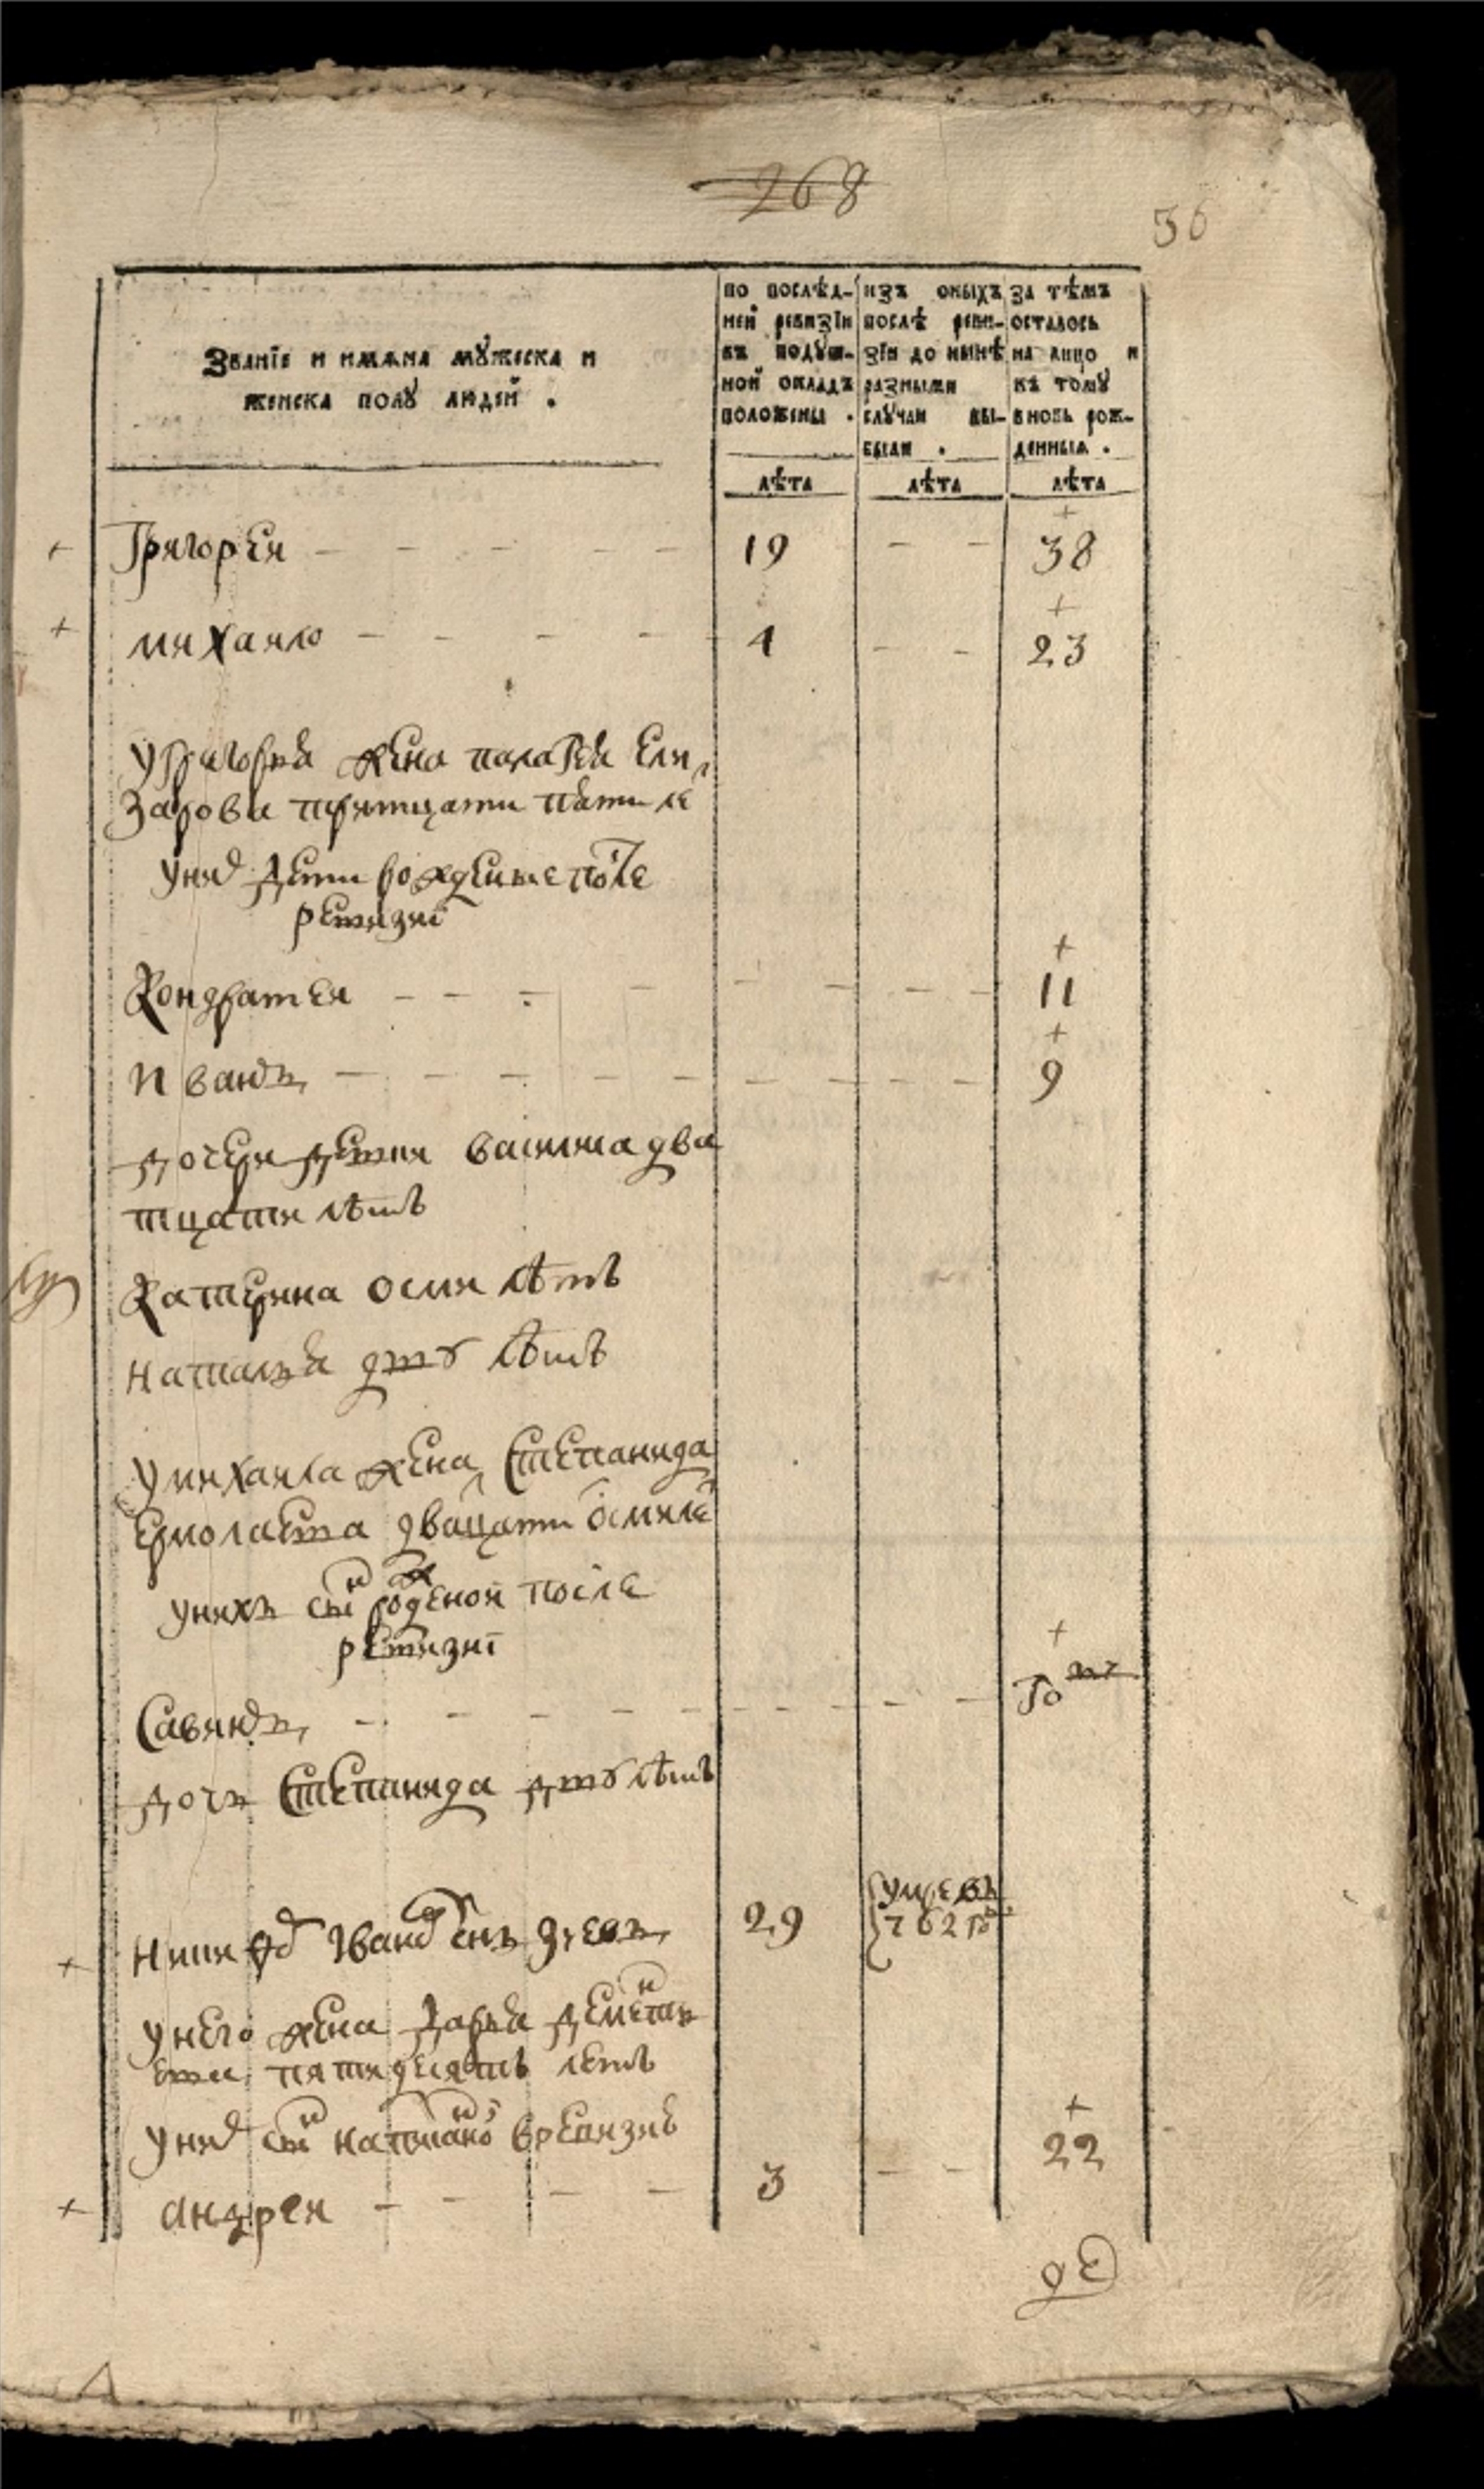 268
36
Званїе и имѧна мꙋжеска и
женска полꙋ людей .
по послѣд-
ней ревизїи
въ подꙋш-
ной окладъ
положены .
изъ оныхъ
послѣ реви-
зїи до нынѣ
разными
слꙋчаи вы-
были .
за тѣмъ
осталось
на лицо и
къ томꙋ
вновь рож-
денныѧ .
лѣта лѣта лѣта
Григорей 19 38
михаило 4 23
у григорья жена палагѣя ели
зарова тритцати пяти ле
у них дети рожденые после
ревизиї
Кондратей 11
иванъ 9
дочери девки василиса два
тцати лѣтъ
Катерина осми лѣтъ
наталья двꙋ лѣтъ
у михаила жена степанида
ермолаева двацати осми ле
у нихъ сынъ роженой после
ревизиї
Савинъ го
дочь степанида двꙋ лѣтъ
никифоръ иванов снъ 29 умре въ
762 го
у него жена дарья дементь
ева пятидесятъ летъ
у них сынъ написаной в ревизиѣ
андрей 3 22